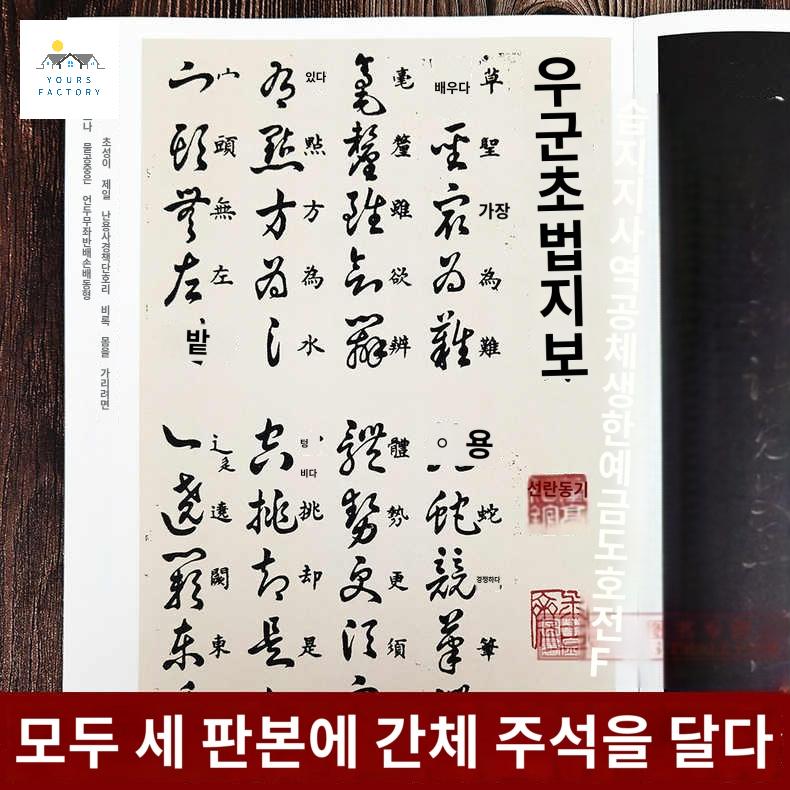 YOURS
FACTORY
우군초법지보
배우다
草聖
가장
為難
毫釐雖欲辨
있다
點方為水
宀頭無左
밭
용
蛇
경쟁하다
筆
體勢更須
텅
비다
挑却是
辶遶闕東
선란동기
습지지사역공체생한예금도호전F
초성이 제일 난용사경책단호리 비록 몸을 가리려면
물공중은 언두무좌반배손배동형
모두 세 판본에 간체 주석을 달다